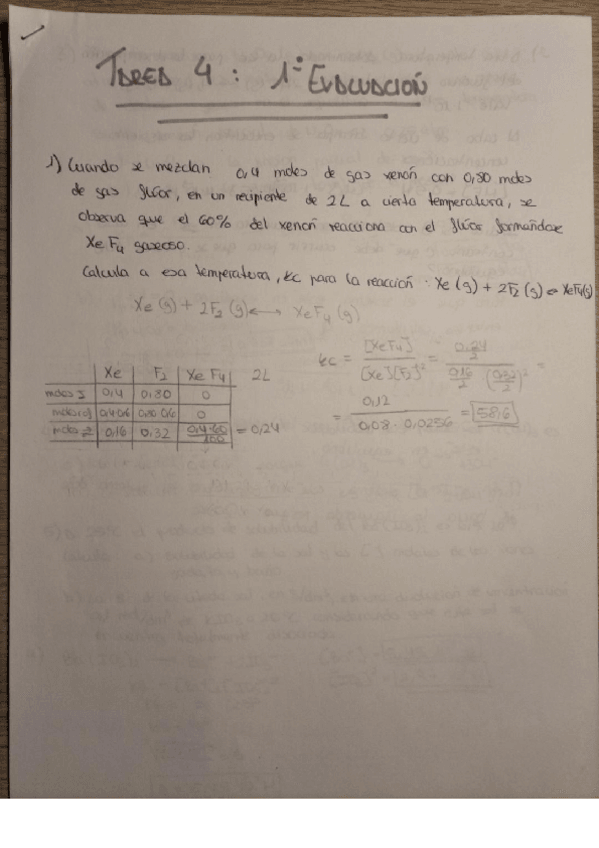 TAREA 4 : 1ª EVALUACIÓN
1) Cuando se mezclan 0,4 moles de gas xenón con 0,80 moles
de gas flúor, en un recipiente de 2L a cierta temperatura, se
observa que el 60% del xenón reacciona con el flúor formándose
XeF4 gaseoso.
Calcula a esa temperatura, Kc para la reacción : Xe (g) + 2F2 (g) ⇌ XeF4(g)
Xe (g) + 2F2 (g) ⟷ XeF4 (g)
Xe F2 XeF4 2L
moles I 0,4 0,80 0
0,4·0,6 0,80·0,6 0
0,16 0,32 0,4·60/100 = 0,24
Kc = [XeF4]/[Xe][F2]² = 0,24/2 / 0,16/2 (0,32/2)² =
= 0,12 / 0,08 · 0,0256 = 58,6